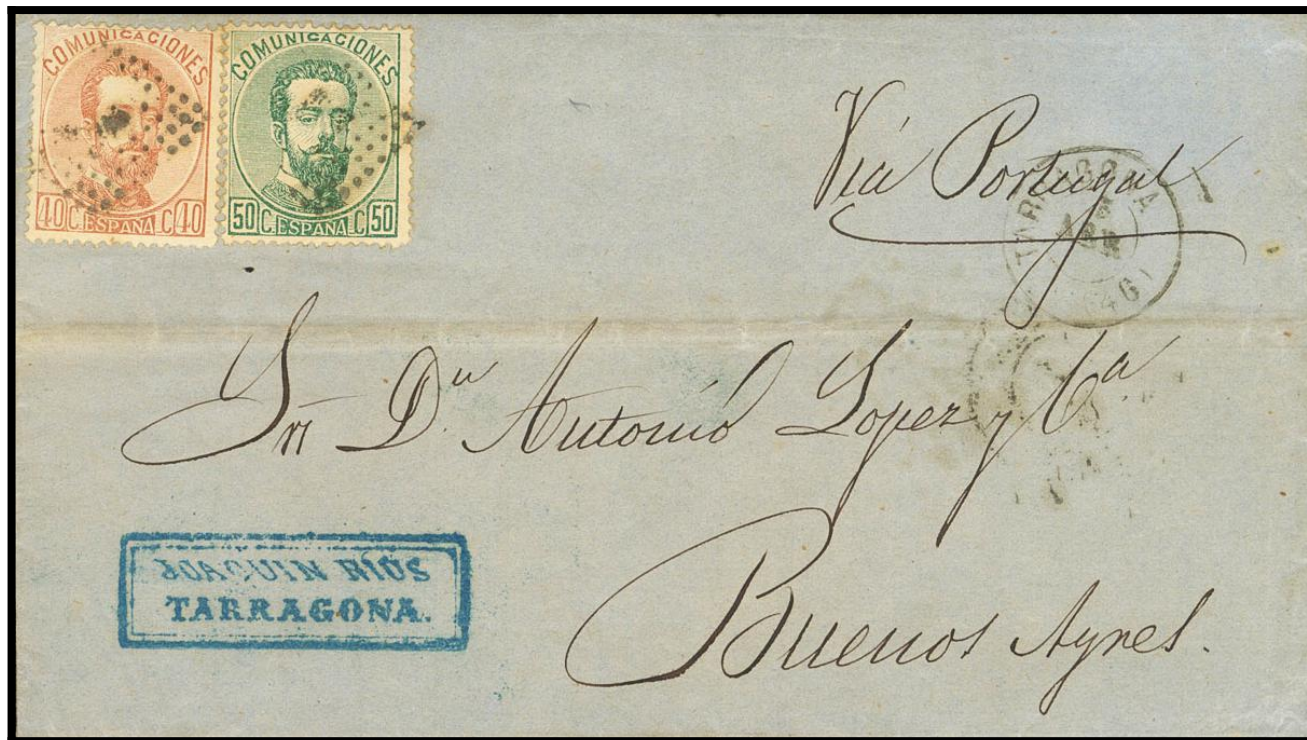 COMUNICACIONES
40 C. ESPAÑA C 40
COMUNICACIONES
50 C. ESPAÑA C 50
Via Portugal
TARRAGONA
ABR
(46)
Sr D.n Antonió Lopez y Ca.
Buenos Ayres.
JOAQUIN RIOS
TARRAGONA.